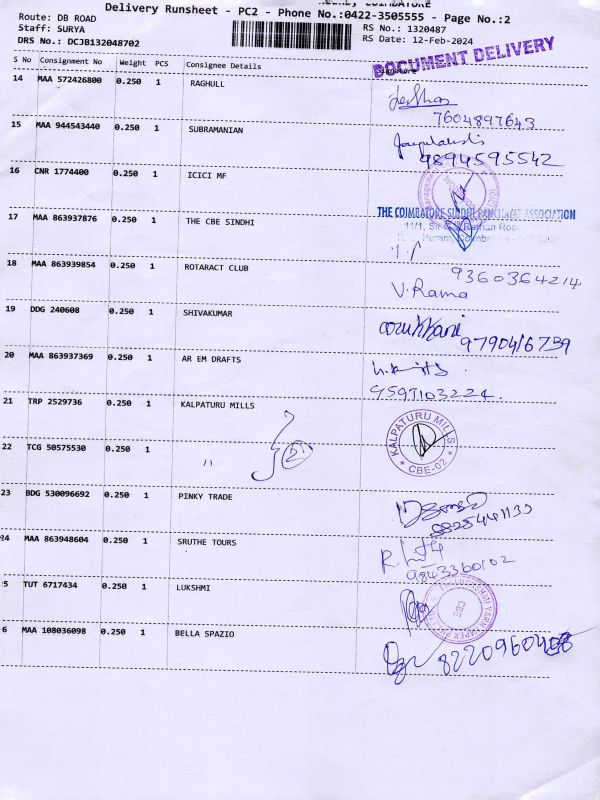 Delivery Runsheet - PC2 - Phone No.:0422-3505555 - Page No.:2
Route: DB ROAD RS No.: 1320487
Staff: SURYA RS Date: 12-Feb-2024
DRS No.: DCJB132048702
DOCUMENT DELIVERY
S No Consignment No Weight PCS Consignee Details
14 MAA 572426800 0.250 1 RAGHULL
7604897643
15 MAA 944543440 0.250 1 SUBRAMANIAN
9894595542
16 CNR 1774400 0.250 1 ICICI MF
17 MAA 863937876 0.250 1 THE CBE SINDHI
THE COIMBATORE SINDHI PANCHAYAT ASSOCIATION
18 MAA 863939854 0.250 1 ROTARACT CLUB
9360364214
V. Rama
19 DDG 240608 0.250 1 SHIVAKUMAR
9790416739
20 MAA 863937369 0.250 1 AR EM DRAFTS
21 TRP 2529736 0.250 1 KALPATURU MILLS
KALPATURU MILLS
CBE-02
22 TCG 50575530 0.250 1 "
23 BDG 530096692 0.250 1 PINKY TRADE
24 MAA 863948604 0.250 1 SRUTHE TOURS
9843360102
5 TUT 6717434 0.250 1 LUKSHMI
6 MAA 108036098 0.250 1 BELLA SPAZIO